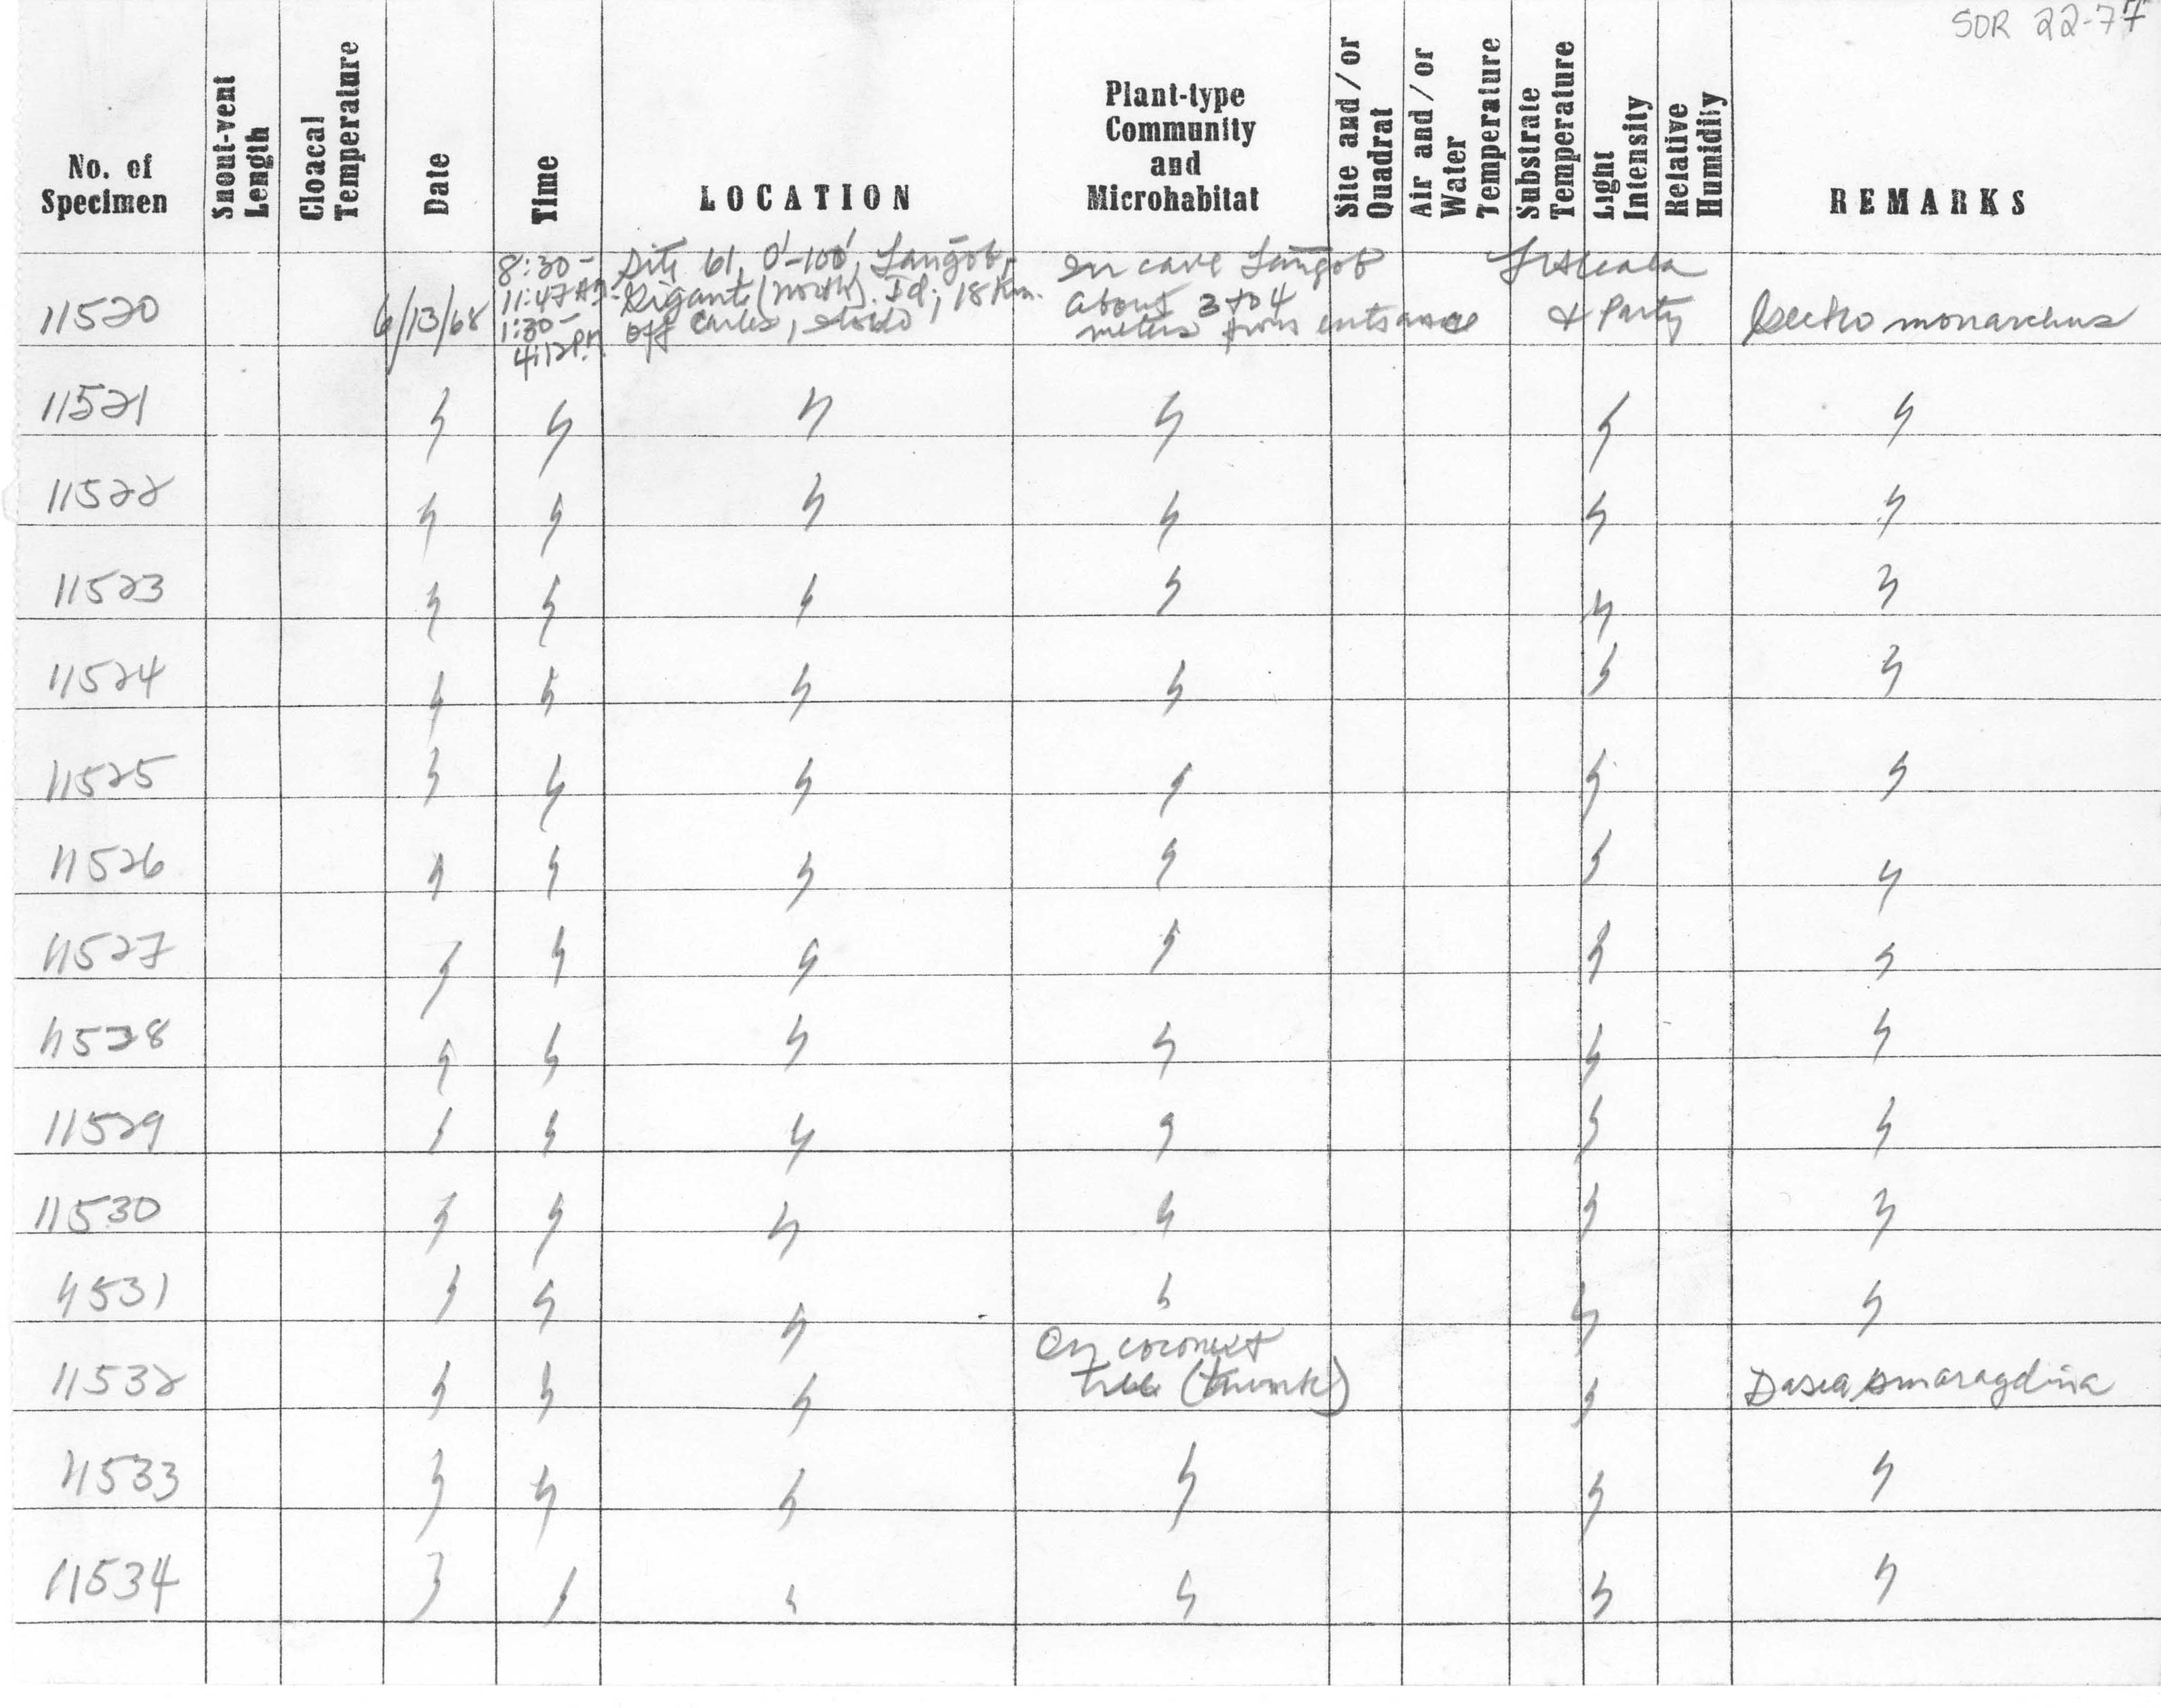 SOR 22-77
No. of Specimen
Snout-vent Length
Cloacal Temperature
Date
Time
LOCATION
Plant-type Community and Microhabitat
Site and/or Quadrat
Air and/or Water Temperature
Substrate Temperature
Light Intensity
Relative Humidity
REMARKS
11520 6/13/68 8:30- 11:47 AM- 1:30- 4:12 P.M.
Site 61, 0'-100', Langob,
Gigante (North) Id; 18 Km.
off Carles, Iloilo
In cave Langob
about 3 to 4
meters from entrance
Alcala
& Party
Gekko monarchus
11521 " " " " " "
11522 " " " " " "
11523 " " " " " "
11524 " " " " " "
11525 " " " " " "
11526 " " " " " "
11527 " " " " " "
11528 " " " " " "
11529 " " " " " "
11530 " " " " " "
11531 " " " " " "
11532 " " " On coconut tree (trunk) " Dasia smaragdina
11533 " " " " " "
11534 " " " " " "